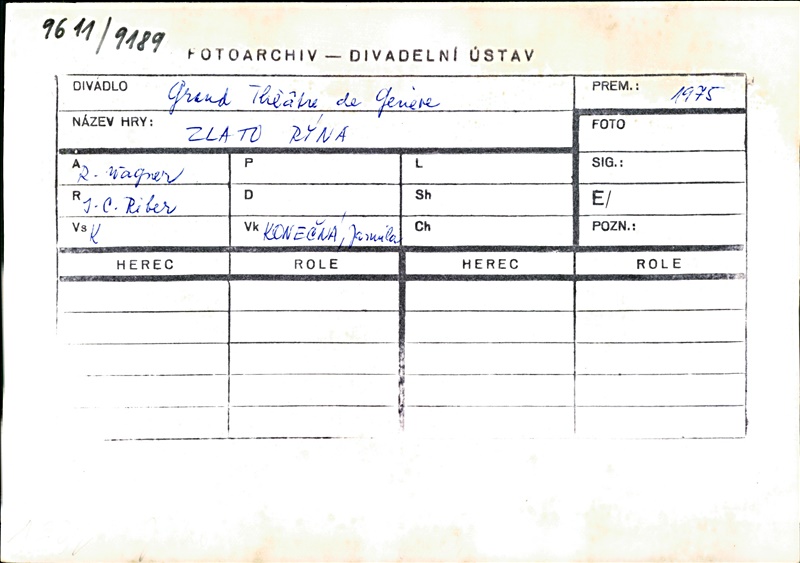 9611/9189
FOTOARCHIV — DIVADELNÍ ÚSTAV
DIVADLO Grand Théâtre de Genève PREM.: 1975
NÁZEV HRY: ZLATO RÝNA FOTO
A R. Wagner P L SIG.:
R J. C. Riber D Sh E/
Vs K Vk KONEČNÁ, Jarmila Ch POZN.:
HEREC ROLE HEREC ROLE